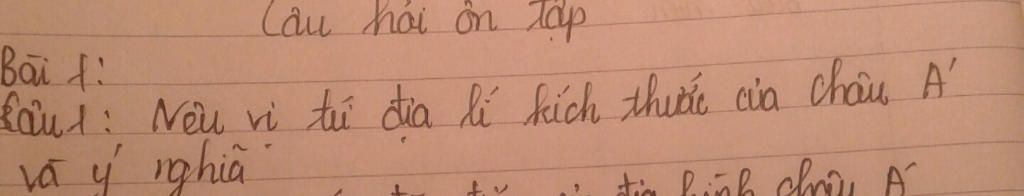 Câu hỏi ôn tập
Bài 1:
Câu 1: Nêu vị trí địa lí kích thước của châu Á
và ý nghĩa
địa hình châu Á